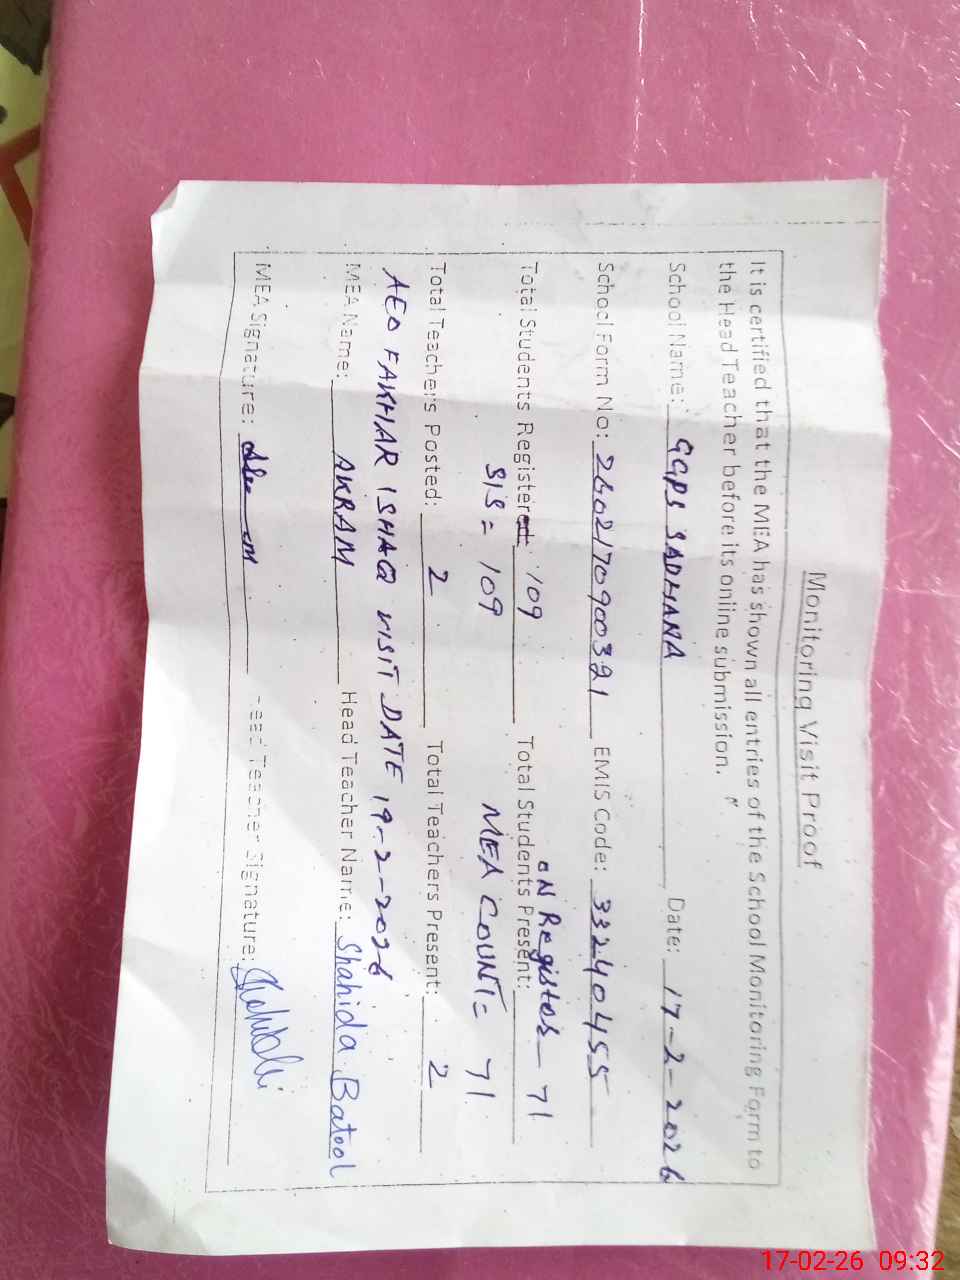 Monitoring Visit Proof
It is certified that the MEA has shown all entries of the School Monitoring Form to
the Head Teacher before its online submission.
School Name: GGPS SADHANA Date: 17-2-2026
School Form No: 2602170900321 EMIS Code: 33240455
ON Register - 71
Total Students Registered: 109 Total Students Present:
SIS = 109 MEA COUNT = 71
Total Teachers Posted: 2 Total Teachers Present: 2
AEO FAKHAR ISHAQ VISIT DATE 19-2-2026
MEA Name: AKRAM Head Teacher Name: Shahida Batool
MEA Signature: Head Teacher Signature:
17-02-26 09:32